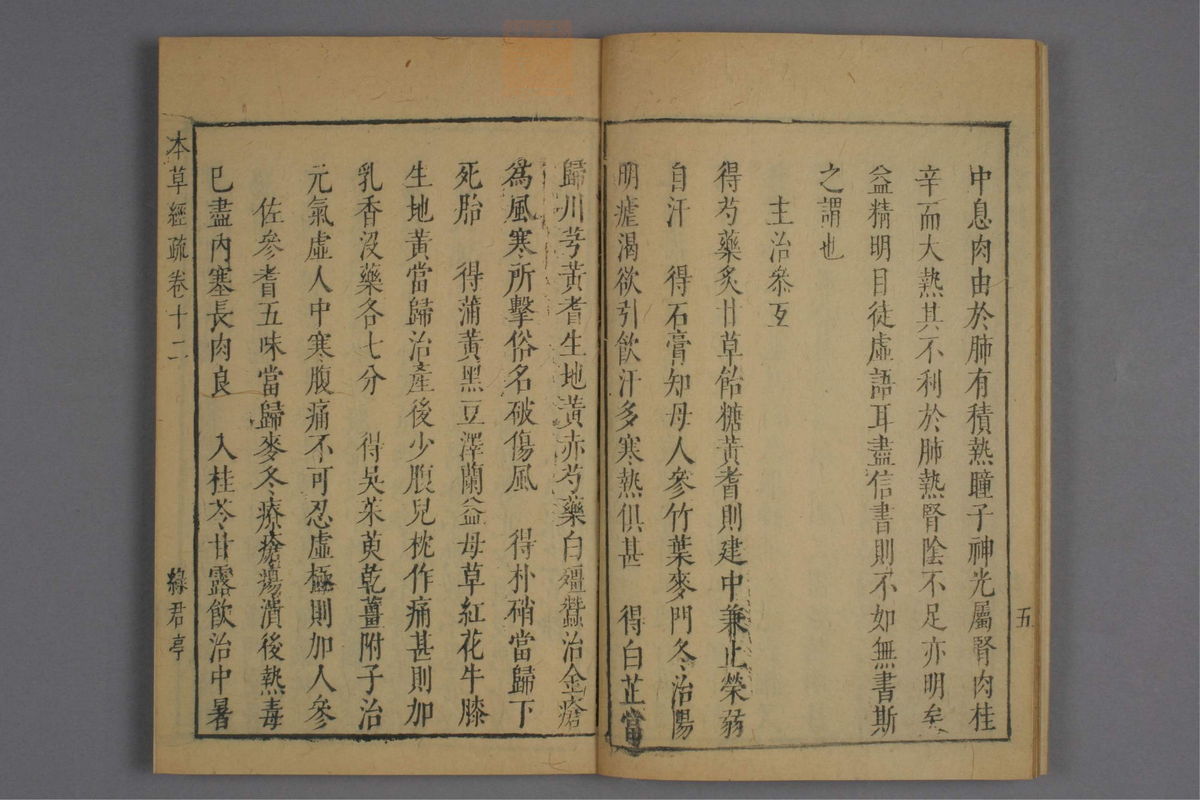 五
中息肉由於肺有積熱瞳子神光屬腎肉桂
辛而大熱其不利於肺熱腎陰不足亦明矣
益精明目徒虛語耳盡信書則不如無書斯
之謂也
主治叅互
得芍藥炙甘草飴糖黃耆則建中兼止榮弱
自汗　得石膏知母人參竹葉麥門冬治陽
明瘧渴欲引飲汗多寒熱俱甚　得白芷當
歸川芎黃耆生地黃赤芍藥白殭蠶治金瘡
為風寒所擊俗名破傷風　得朴硝當歸下
死胎　得蒲黃黑豆澤蘭益母草紅花牛膝
生地黃當歸治產後少腹兒枕作痛甚則加
乳香沒藥各七分　得吳茱萸乾薑附子治
元氣虛人中寒腹痛不可忍虛極則加人參
佐參耆五味當歸麥冬療瘡瘍潰後熱毒
已盡內塞長肉良　入桂苓甘露飲治中暑
本草經疏卷十二
綠君亭